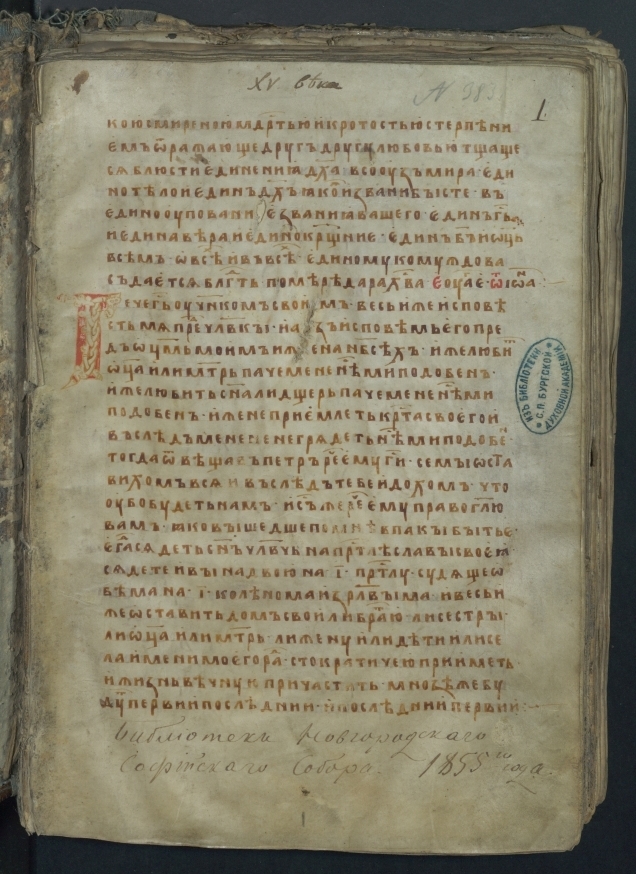 XV вѣка
N 983
1
кою смѣреною мдрⷭтью и кротостью с терпѣни
емъ ѿражающе другъ другу любовью тщаще
сѧ блюсти единениꙗ дх҃а в соузъ мира · еди
но тѣло и единъ дх҃ъ ꙗкⷪ и звани бысте · въ
едино оуповани е званиꙗ вашего · единъ гь҃
и едина вѣра и едино крщ҃ние · единъ бъ҃ и ѡц҃ь
всѣмъ · ѡ всѣⷯ и въ всѣⷯ единому комуждо ва
съ даетсѧ блг҃ть по мѣрѣ дара хв҃а еоуⷢ҇а҇е · ѿ іѡа
Рече гь҃ оучн҃комъ своимъ · весь иже исповѣ
сть мѧ преⷣ члв҃кы · и азъ исповѣмь его пре
дъ ѡц҃мь моимъ иже на нб҃сѣхъ · иже любиⷮ
ѡц҃а или мт҃рь паче мене нѣⷭ ми подобенъ ·
и иже любить сн҃а ли дщерь паче мене нѣⷭ ми
подобенъ · иже не приемлеть крⷭта своего и
въ слѣдъ мене не грѧдеть нѣⷭ ми подобеⷩ ·
тогда ѿвѣщавъ петръ реⷱ ему ги҃ · се мы ѡста
вихомъ всѧ и въ слѣдъ тебе идохомъ · что
оубо будеть намъ · іс҃ъ же реⷱ ему право глю҃
вамъ · ꙗко вы шедше по мнѣ в пакы бытье ·
егⷣа сѧдеть сн҃ъ члв҃чь на прⷭтлѣ славы своеꙗ
сѧдете и вы на двою на · і҃ · прⷭтлу · судѧще ѡ
бѣма на · і҃ · колѣнома из҃раилвыма · и весь и
же ѡставить домъ свои ли братⷨю · ли сестры ·
ли ѡц҃а или мт҃рь · ли жену или дѣти или се
ла имени моего раⷣ · стократичею прииметь ·
и жизнь вѣчную причастить · мнози же бу
дуⷮ первии послѣднии · и послѣднии первии
Библіотеки Новгородскаго
Софійскаго Собора. 1855го года.
ИЗЪ БИБЛІОТЕКИ
С.П. БУРГСКОЙ
ДУХОВНОЙ АКАДЕМІИ